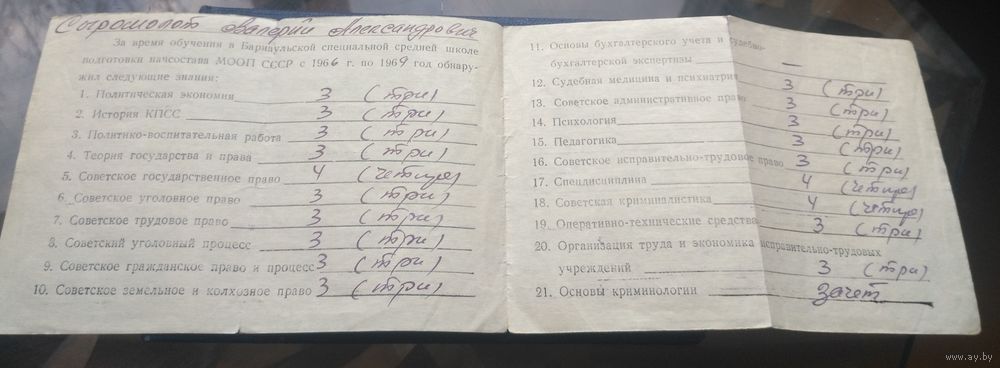 Стромолот Валерий Александрович
За время обучения в Барнаульской специальной средней школе
подготовки начсостава МООП СССР с 1966 г. по 1969 год обнару-
жил следующие знания:
1. Политическая экономия 3 (три)
2. История КПСС 3 (три)
3. Политико-воспитательная работа 3 (три)
4. Теория государства и права 3 (три)
5. Советское государственное право 4 (четыре)
6. Советское уголовное право 3 (три)
7. Советское трудовое право 3 (три)
8. Советский уголовный процесс 3 (три)
9. Советское гражданское право и процесс 3 (три)
10. Советское земельное и колхозное право 3 (три)
11. Основы бухгалтерского учета и судебно-
бухгалтерской экспертизы —
12. Судебная медицина и психиатрия 3 (три)
13. Советское административное право 3 (три)
14. Психология 3 (три)
15. Педагогика 3 (три)
16. Советское исправительно-трудовое право 3 (три)
17. Спецдисциплина 4 (четыре)
18. Советская криминалистика 4 (четыре)
19. Оперативно-технические средства 3 (три)
20. Организация труда и экономика исправительно-трудовых
учреждений 3 (три)
21. Основы криминологии зачет
www.ay.by